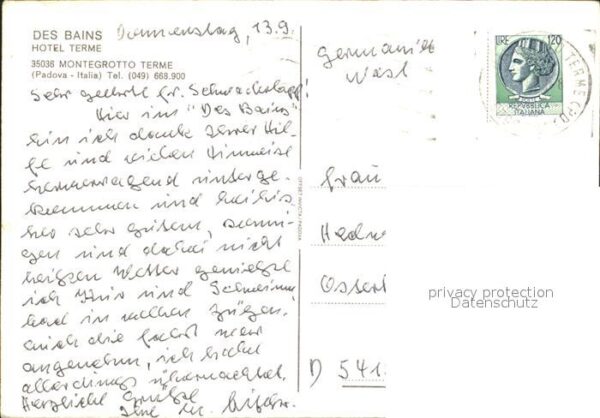 DES BAINS
HOTEL TERME
35036 MONTEGROTTO TERME
(Padova - Italia) Tel. (049) 668.900
Donnerstag, 13.9.
Sehr geehrte Fr.
Hier im "Des Bains"
bin ich dank Ihrer Hil-
fe und vielen Hinweise
hervorragend unterge-
kommen und bei bis-
her sehr gutem, sonni-
gen und dabei nicht
heißen Wetter genieße
ich Kur und Schwimm-
bad in vollen Zügen.
Auch die Fahrt war
angenehm, ich habe
allerdings übernachtet.
Herzliche Grüße
Ihre
OFFSET INVICTA-PADOVA
Germania
West
LIRE 120
REPUBBLICA
ITALIANA
TERME
Frau
Hedw
Ostert
D 541
privacy protection
Datenschutz